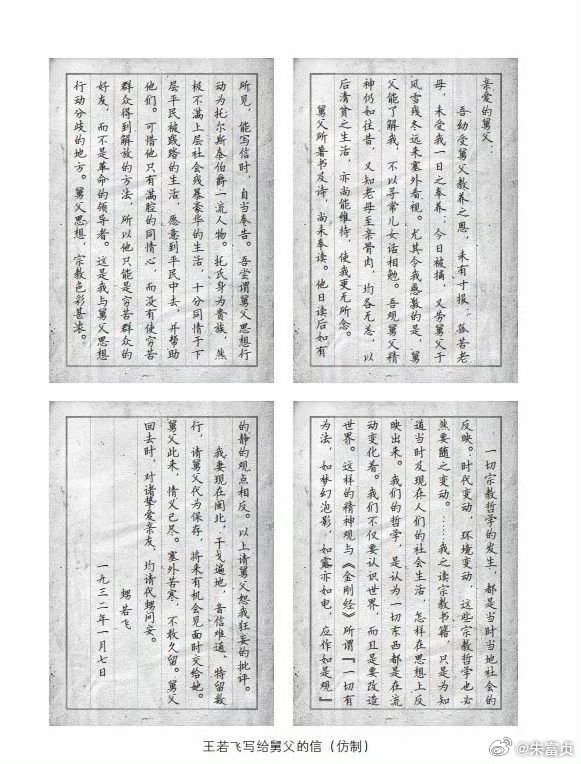 亲爱的舅父：
吾幼受舅父教养之恩，未有寸报；孤苦老
母，未受我一日之奉养；今日被捕，又劳舅父于
风雪残冬远来塞外看视。尤其令我感激的是，舅
父能了解我，不以寻常儿女话相勉。吾观舅父精
神仍如往昔，又知老母至亲骨肉，均各无恙，以
后清贫之生活，亦尚能维持，使我更无所念。
舅父所著书及诗，尚未奉读。他日读后如有
所见，能写信时，自当奉告。吾尝谓舅父思想行
动为托尔斯泰伯爵一流人物。托氏身为贵族，然
极不满上层社会残暴豪华的生活，十分同情于下
层平民被践踏的生活，愿意到平民中去，并帮助
他们。可惜他只有满腔的同情心，而没有使穷苦
群众得到解放的方法，所以他只能是穷苦群众的
好友，而不是革命的领导者。这是我与舅父思想
行动分歧的地方。舅父思想，宗教色彩甚浓。
一切宗教哲学的发生，都是当时当地社会的
反映。时代变动，环境变动，这些宗教哲学也必
然要随之变动。……我之读宗教书籍，只是为知
道当时及现在人们的社会生活，怎样在思想上反
映出来。我们的哲学，是认为一切东西都是在流
动变化着。我们不仅要认识世界，而且是要改造
世界。这样的精神观与《金刚经》所谓『一切有
为法，如梦幻泡影，如露亦如电，应作如是观』
的静的观点相反。以上请舅父恕我狂妄的批评。
我妻现在闽北，干戈遍地，音信难通，特留数
行，请舅父代为保存，将来有机会见面时交给她。
舅父此来，情义已尽。塞外苦寒，不敢久留。舅父
回去时，对诸挚爱亲友，均请代甥问安。
甥若飞
一九三二年一月七日
王若飞写给舅父的信（仿制）
@朱富贞